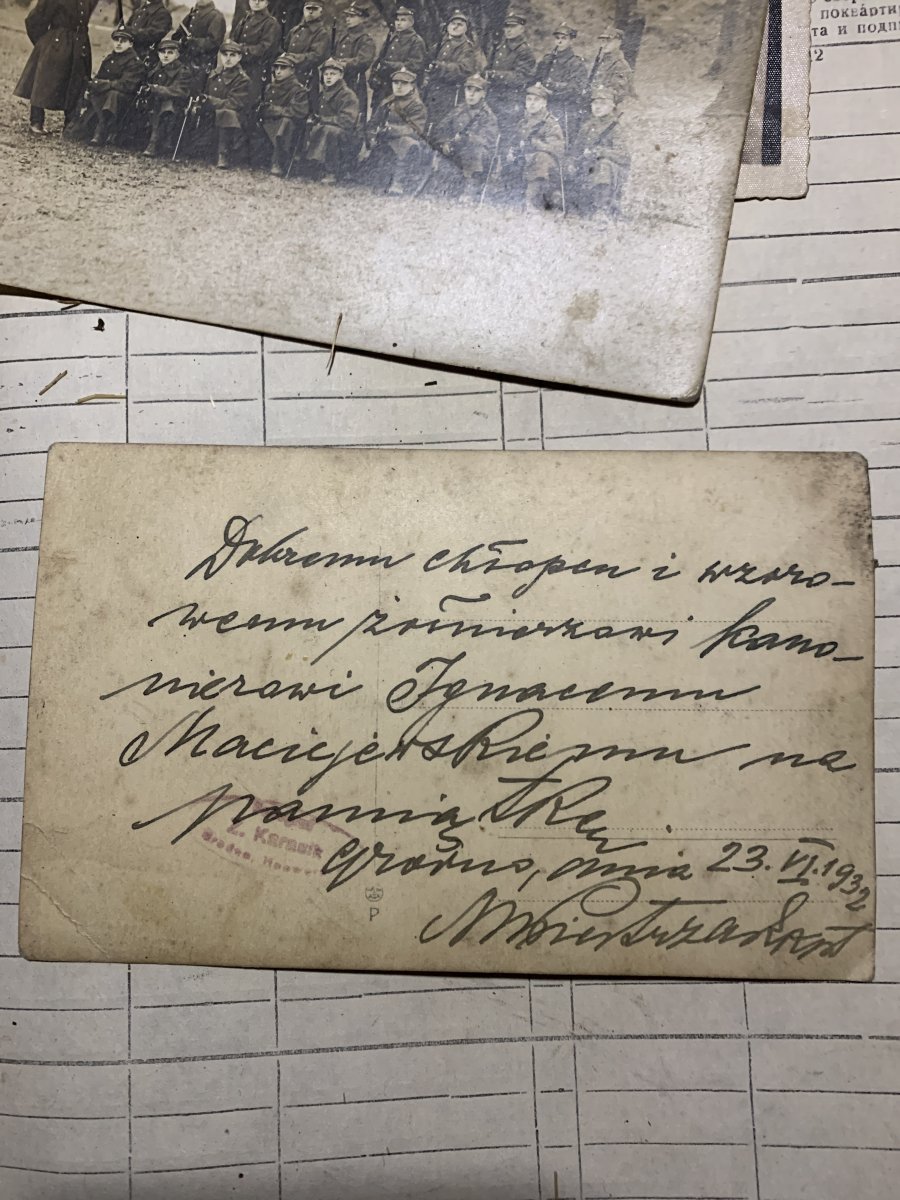 покварти
та и подп
2
Dobremu chłopcu i wzoro-
wemu żołnierzowi kano-
nierowi Ignacemu
Maciejewskiemu na
pamiątkę.
Grodno, dnia 23.VI.1932
Pietrzak kpt
Z. Karasik
Grodno,
P